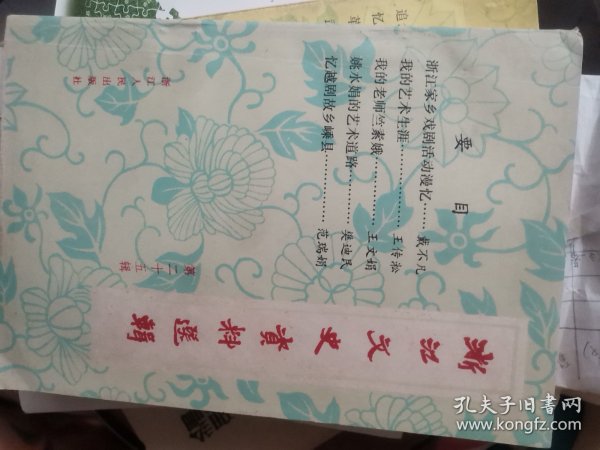 浙江文史資料選輯
第二十五辑
要目
浙江家乡戏剧活动漫忆……戴不凡
我的艺术生涯…………王传淞
我的老师竺素娥…………王文娟
姚水娟的艺术道路………樊迪民
忆越剧故乡嵊县…………范瑞娟
浙江人民出版社
孔夫子旧书网
www.kongfz.com